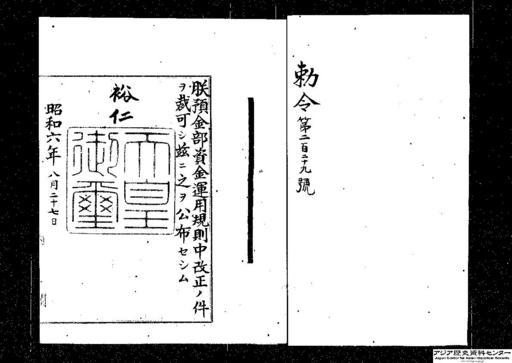 勅令第二百二十九號
朕預金部資金運用規則中改正ノ件
ヲ裁可シ茲ニ之ヲ公布セシム
裕仁
天皇御璽
昭和六年八月二十七日
アジア歴史資料センター
Japan Center for Asian Historical Records